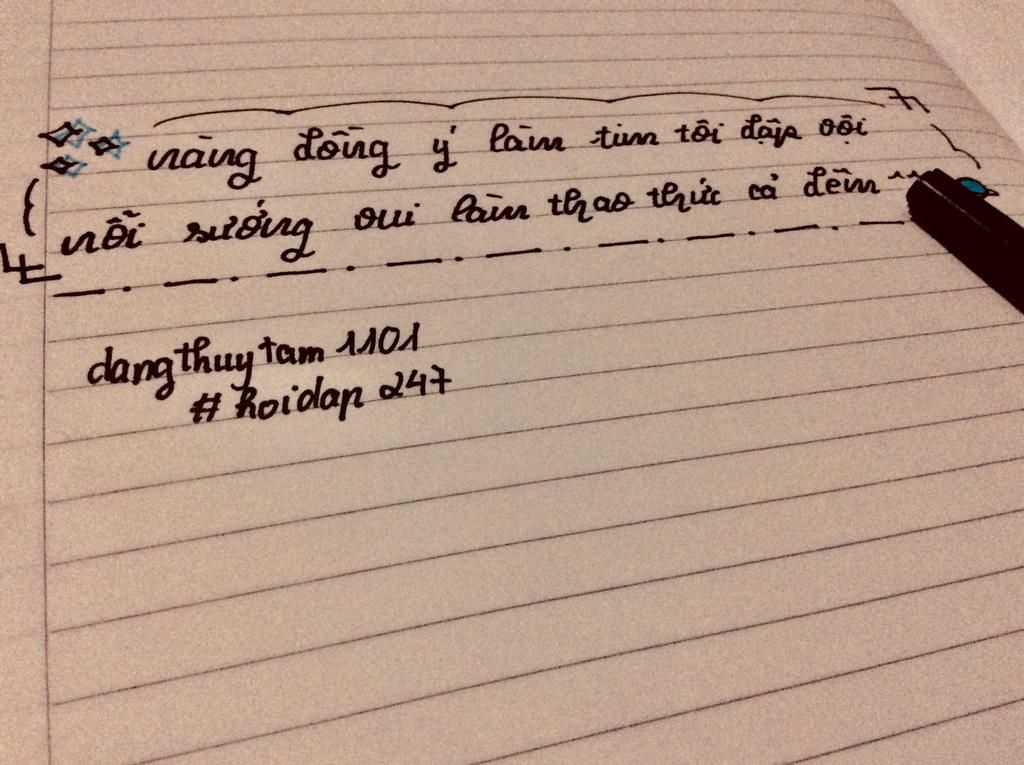 nàng đồng ý làm tim tôi đập vội
nỗi sướng vui làm thao thức cả đêm ^^
dangthuytam 1101
# hoidap 247